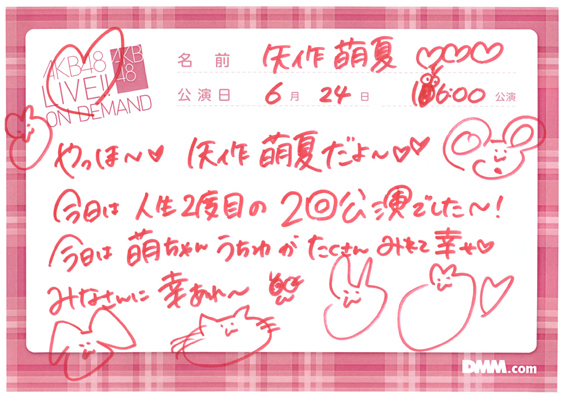 AKB48
LIVE!!
ON DEMAND
AKB
48
名前 矢作萌夏
公演日 6月24日 16:00公演
やっほ〜♡ 矢作萌夏だよ〜♡♡
今日は人生2度目の2回公演でした〜!
今日は萌ちゃんうちわがたくさんみえて幸せ♡
みなさんに幸あれ〜
DMM.com